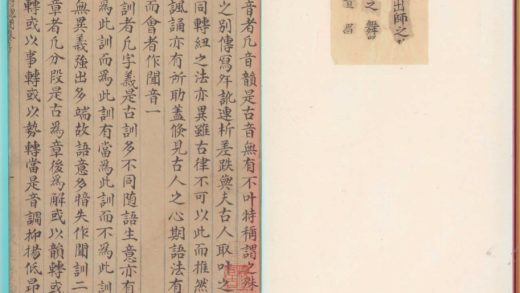 出師之
之舞
音者凢音韻是古音無有不叶特稱謂之殊
之別傳寫年訛連析差跌與夫古人取叶之
同轉紐之法亦異雖古律不可以此而推然
諷誦亦有所助蓋倏見古人之心期語法有
而會者作闡音一
訓者凢字義是古訓多不同随語生意亦有
為此訓而為此訓有當為此訓而不為此訓
無異義強出多端故語意多暗失作闡訓二
章者凢分段是古為章後為解或以韻轉或
轉或以事轉或以勢轉當是音調抑揚低昂